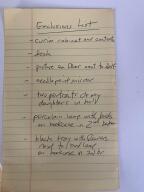 Exclusions List
- curio cabinet and contents
- desk
- picture on floor next to desk
- needlepoint mirror
- two portraits of my
daughters in hall
- porcelain lamp with birds
on bookcase in 2nd bdrm
- black tray with flowers
next to bird lamp
on bookcase in 2nd br